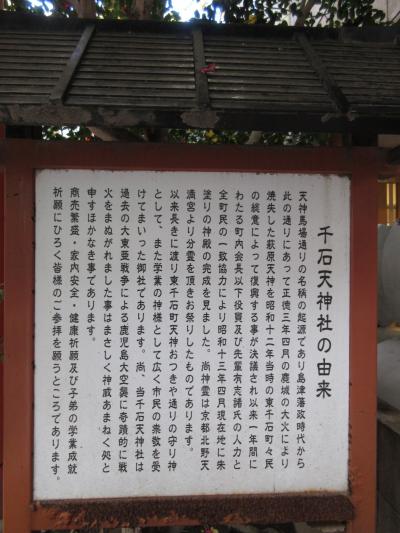 千石天神社の由来
天神馬場通りの名称の起源であり島津藩政時代から
此の通りにあって正徳三年四月の鹿城の大火により
焼失した萩原天神を昭和十二年当時の東千石町々民
の総意によって復興する事が決議され以来一年間に
わたる町内会長以下役員及び先輩有志諸氏の人力と
全町民の一致協力により昭和十三年四月現在地に朱
塗りの神殿の完成を見ました。尚神霊は京都北野天
満宮より分霊を頂きお祭りしたものであります。
以来長きに渡り東千石町天神おつきや通りの守り神
として、また学業の神様として広く市民の崇敬を受
けてまいった御社であります。尚、当千石天神社は
過去の大東亜戦争による鹿児島大空襲に奇蹟的に戦
火をまぬがれました事はまさしく神威あまねく処と
申すほかなき事であります。
商売繁盛・家内安全・健康祈願及び子弟の学業成就
祈願にひろく皆様のご参拝を願うところであります。